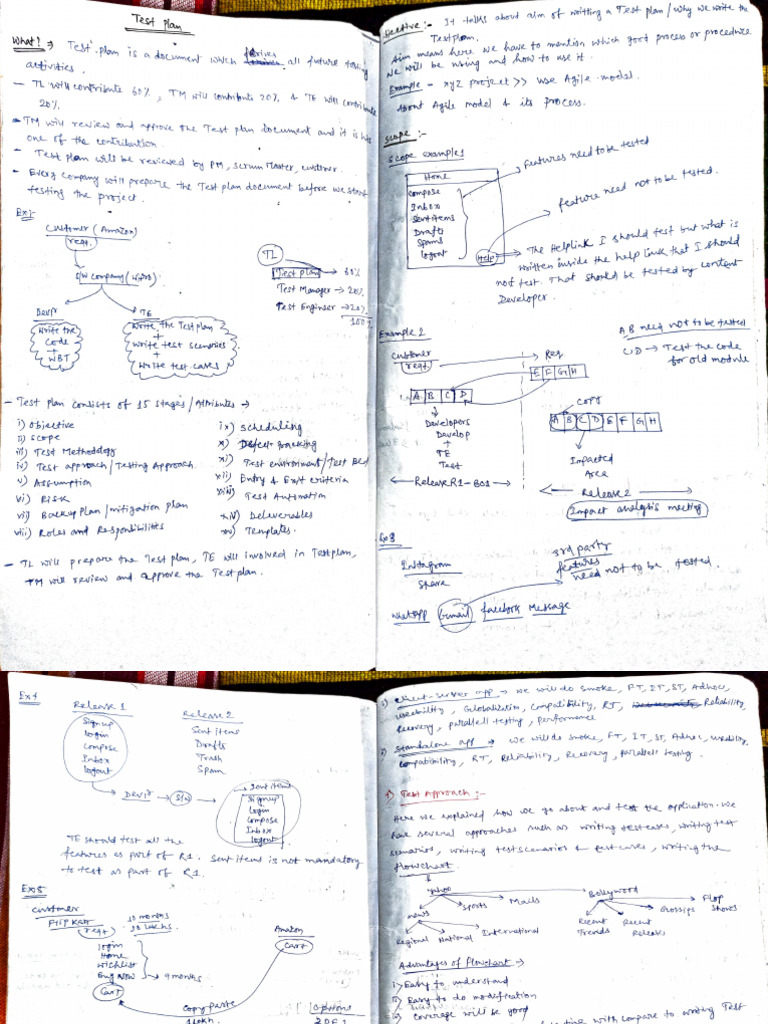 Test plan
What? → Test plan is a document which drives all future testing
activities.
- TL will contribute 60%, TM will contribute 20% & TE will contribute
20%.
- TM will review and approve the Test plan document and it is his
one of the contribution.
- Test plan will be reviewed by PM, scrum Master, customer.
- Every company will prepare the Test plan document before we start
testing the project.
Ex:-
Customer (Amazon)
reqt.
S/W company (Wipro)
Devpr
TE
Write the
Code
+
WBT
Write the Test plan
+
Write test scenarios
+
Write test cases
TL
Test plan → 60%
Test Manager → 20%
Test Engineer → 20%
100%
- Test plan consists of 15 stages/Attributes →
i) objective
ii) scope
iii) Test Methodology
iv) Test approach/Testing Approach
v) Assumption
vi) Risk
vii) Backup Plan/mitigation plan
viii) Roles and Responsibilities
ix) scheduling
x) Defect tracking
xi) Test environment/Test Bed
xii) Entry & Exit criteria
xiii) Test Automation
xiv) Deliverables
xv) Templates.
- TL will prepare the Test plan, TE will involved in Testplan,
TM will review and approve the Test plan.
objective :- It talks about aim of writting a Test plan/why we write the
Testplan.
Aim means here we have to mention which good process or procedure
we will be using and how to use it.
Example - xyz project >> use Agile model
About Agile model & its process.
scope :-
scope example 1
Home
compose
Inbox
Sent items
Drafts
Spams
logout
Help
features need to be tested
feature need not to be tested.
→ The Helplink I should test but what is
written inside the help link that I should
not test. That should be tested by content
Developer.
Example 2
customer
reqt.
Req
E F G H
A B C D
Developers
Develop
+
TE
Test
← Release R1-B01 →
AB need not to be tested
CD → Test the code
for old module
copy
A B C D E F G H
Impacted
Area
← Release 2 →
Impact analysis meeting
Ex 3
Instagram
Share
3rd party
features
need not to be tested.
whatsapp Gmail facebook Message
Ex 4
Release 1
Signup
login
Compose
Inbox
logout
Release 2
Sent items
Drafts
Trash
Spam
→ Devpr → S/W →
Sent items
Signup
Login
Compose
Inbox
logout
TE should test all the
features as part of R1. Sent items is not mandatory
to test as part of R1.
Ex 5
Customer
Flipkart
reqt
10 months
login
Home
Wishlist
→ 9 months
Cart
Amazon
Cart
Copy paste
options
client-server app → we will do smoke, FT, IT, ST, Adhoc,
usability, Globalization, Compatibility, RT, Reliability,
Recovery, parallell testing, performance
standalone app → we will do smoke, FT, IT, ST, Adhoc, usability,
compatibility, RT, Reliability, Recovery, parallell testing.
Test Approach :-
Here we explained how we go about and test the application. We
have several approaches such as writing test cases, writing test
scenarios, writing test scenarios & test cases, writing the
flowchart.
Yahoo
Bollywood
news
Sports
Mails
Regional National International
Recent
Trends
Recent
Releases
Gossips
Flop
Shows
Advantages of flowchart →
i) Easy to understand
ii) Easy to do modification
iii) coverage will be good
with compare to writing Test